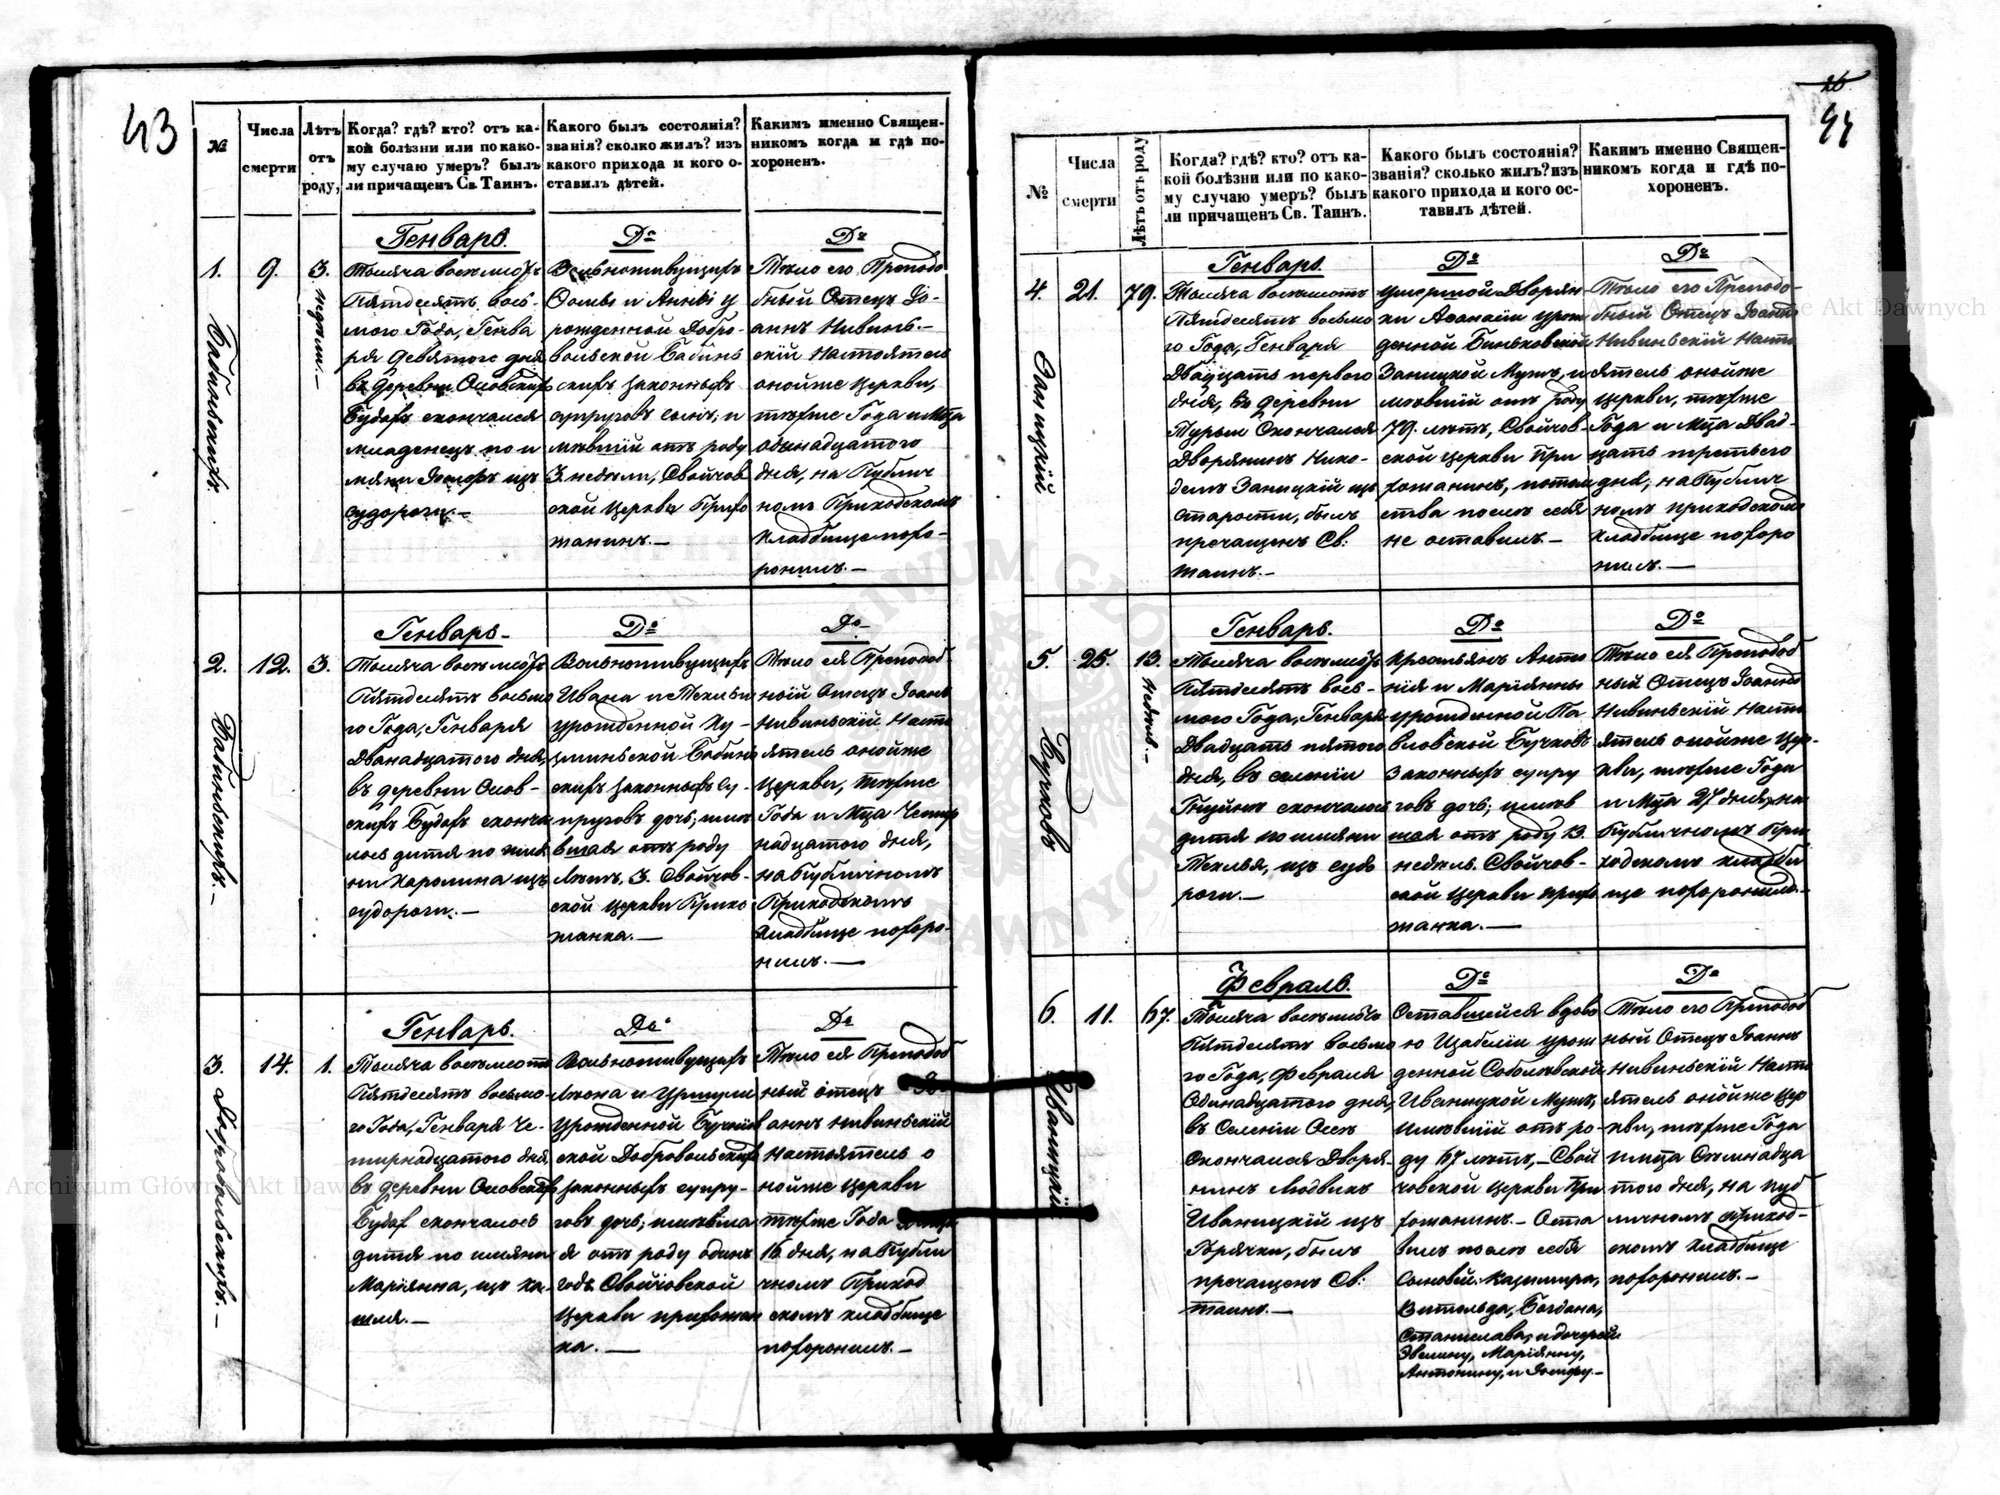 43
№
Числа
смерти
Лѣтъ
отъ
роду,
Когда? гдѣ? кто? отъ ка-
кой болѣзни или по како-
му случаю умеръ? былъ
ли причащенъ Св. Таинъ.
Какого былъ состоянія?
званія? сколко жилъ? изъ
какого прихода и кого о-
ставилъ дѣтей.
Какимъ именно Священ-
никомъ когда и гдѣ по-
хороненъ.
1.
9.
3.
недѣли.—
Бабинскихъ
Генварь.
Тысяча восемьсотъ
Пятдесятъ вось-
мого Года, Генва
ря девятого дня
въ деревни Осовскихъ
Будахъ скончался
младенецъ по и
мяни Іосифъ изъ
судороги.—
До
Вольноживущихъ
Ѳомы и Анны у
рожденной Добро-
вольской Бабинь
скихъ законныхъ
супруговъ сынъ; и
мѣвшій отъ роду
3 недѣли, Свойчов
ской Церкви Прихо
жанинъ.—
До
Тѣло его Преподо
бный Отецъ Іо-
аннъ Нивинь-
скій Настоятель
онойже Церкви,
тѣхже Года и Мца
одинадцатого
дня, на Публич
номъ Приходскомъ
Кладбище похо-
ронилъ.—
2.
12.
3.
Бабиньскихъ.—
Генварь.—
Тысяча восемьсотъ
Пятдесятъ восьмо
го Года, Генваря
Дванадцатого дня,
въ деревни Осов-
скихъ Будахъ сконча
лось дитя по имя
ни Каролина изъ
судороги.—
До
Вольноживущихъ
Ивана и Теклы
урожденной Ку-
циньской Бабинь
скихъ законныхъ су-
пруговъ дочь; имѣ
вшая отъ роду
Лѣтъ, 3. Свойчов-
ской Церкви Прихо
жанка.—
До
Тѣло ея Преподоб
ный Отецъ Іоаннъ
Нивиньскій Насто
ятель онойже
Церкви, тѣхже
Года и Мца Четыр
надцатого дня,
на Публичномъ
Приходскомъ
Кладбище похоро-
нилъ.—
3.
14.
1.
Добровольскихъ.—
Генварь.
Тысяча восемьсотъ
Пятдесятъ восьмо-
го Года, Генваря Че-
тырнадцатого дня,
въ деревни Осовскихъ
Будахъ скончалось
дитя по имяни
Маріянна, изъ ка-
шля.—
До
Вольноживущихъ
Леона и Урщули
урожденной
ской Добровольскихъ
законныхъ супру-
говъ дочь; имѣвша
я отъ роду одинъ
годъ Свойчовской
Церкви прихожан
ка.—
До
Тѣло ея Преподоб
ный отецъ Іо
аннъ Нивиньскій
Настоятель о
нойже Церкви
тѣхже Года и Мца
16 дня, на Публи
чномъ Приход
скомъ кладбище
похоронилъ.—
26
44
№
Числа
смерти
Лѣтъ отъ роду
Когда? гдѣ? кто? отъ ка-
кой болѣзни или по како-
му случаю умеръ? былъ
ли причащенъ Св. Таинъ.
Какого былъ состоянія?
званія? сколько жилъ? изъ
какого прихода и кого ос-
тавилъ дѣтей.
Какимъ именно Священ-
никомъ когда и гдѣ по-
хороненъ.
4.
21.
79.
Заницкій
Генварь.
Тысяча восемьсотъ
Пятдесятъ восьмо
го Года, Генваря
Двадцать первого
дня, въ деревни
Турыи Скончался
Дворянинъ Нико-
демъ Заницкій изъ
старости, былъ
пречащенъ Св:
таинъ.—
До
умершой Дворян-
ки Аѳанасіи урож
денной Биньковской
Заницкой Мужъ, и
мѣвшій отъ роду
79. лѣтъ, Свойчов-
ской Церкви При
хожанинъ, потом
ства послѣ себя
не оставилъ.—
До
Тѣло его Преподо-
бный Отецъ Іоаннъ
Нивиньскій Насто
ятель онойже
Церкви, тѣхже
Года и Мца Двад-
цать третьего
дня, на Публич
номъ приходскомъ
Кладбище похоро
нилъ.—
5.
25.
13.
недѣль.—
Бучковъ
Генварь.
Тысяча восемьсотъ
Пятдесятъ вось-
мого Года, Генваря
Двадцать пятого
дня, въ селеніи
скончалось
дитя по имяни
Текля, изъ судо
роги.—
До
Крестьянъ Анто
нія и Маріянны
урожденной Па
вловской Бучковъ
законныхъ супру
говъ дочь; имѣв
шая отъ роду 13
недѣль. Свойчов-
ской Церкви прихо
жанка.—
До
Тѣло ея Преподоб
ный Отецъ Іоаннъ
Нивиньскій Насто
ятель онойже Цер-
кви, тѣхже Года
и Мца 27 дня, на
Публичномъ При
ходскомъ кладби
ще похоронилъ.—
6.
11.
67.
Иваницкій
Февраль.
Тысяча восемьсотъ
Пятдесятъ восьмо
го Года, Февраля
Одинадцатого дня,
въ Селеніи Осек
Скончался Дворя-
нинъ Людвикъ
Иваницкій изъ
Горячки, былъ
пречащенъ Св:
таинъ.—
До
Оставшейся вдово
ю Изабеліи урож
денной Соболевской
Иваницкой Мужъ,
имѣвшій отъ ро-
ду 67 лѣтъ,—Свой
човской Церкви При
хожанинъ.—Оста
вилъ послѣ себя
Сыновей: Казимира,
Витольда, Богдана,
Станислава, и дочерей:
Эвелину, Маріянну,
Антонину, и Іозефу.—
До
Тѣло его Преподоб
ный Отецъ Іоаннъ
Нивиньскій Насто
ятель онойже Цер
кви, тѣхже Года
и Мца Семнадца
того дня, на пуб
личномъ приход-
скомъ кладбище
похоронилъ.—
Archiwum Główne Akt Dawnych
Archiwum Główne Akt Dawnych